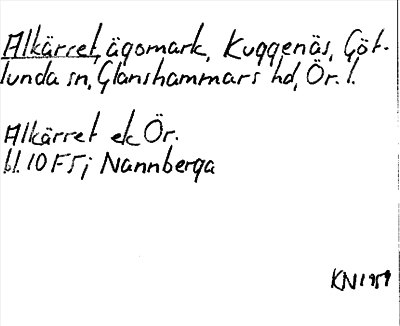 Alkärret, ägomark, Kuggenäs, Göt-
lunda sn, Glanshammars hd, Ör. l.
Alkärret ek Ör.
bl. 10F5j Nannberga
KN 1959